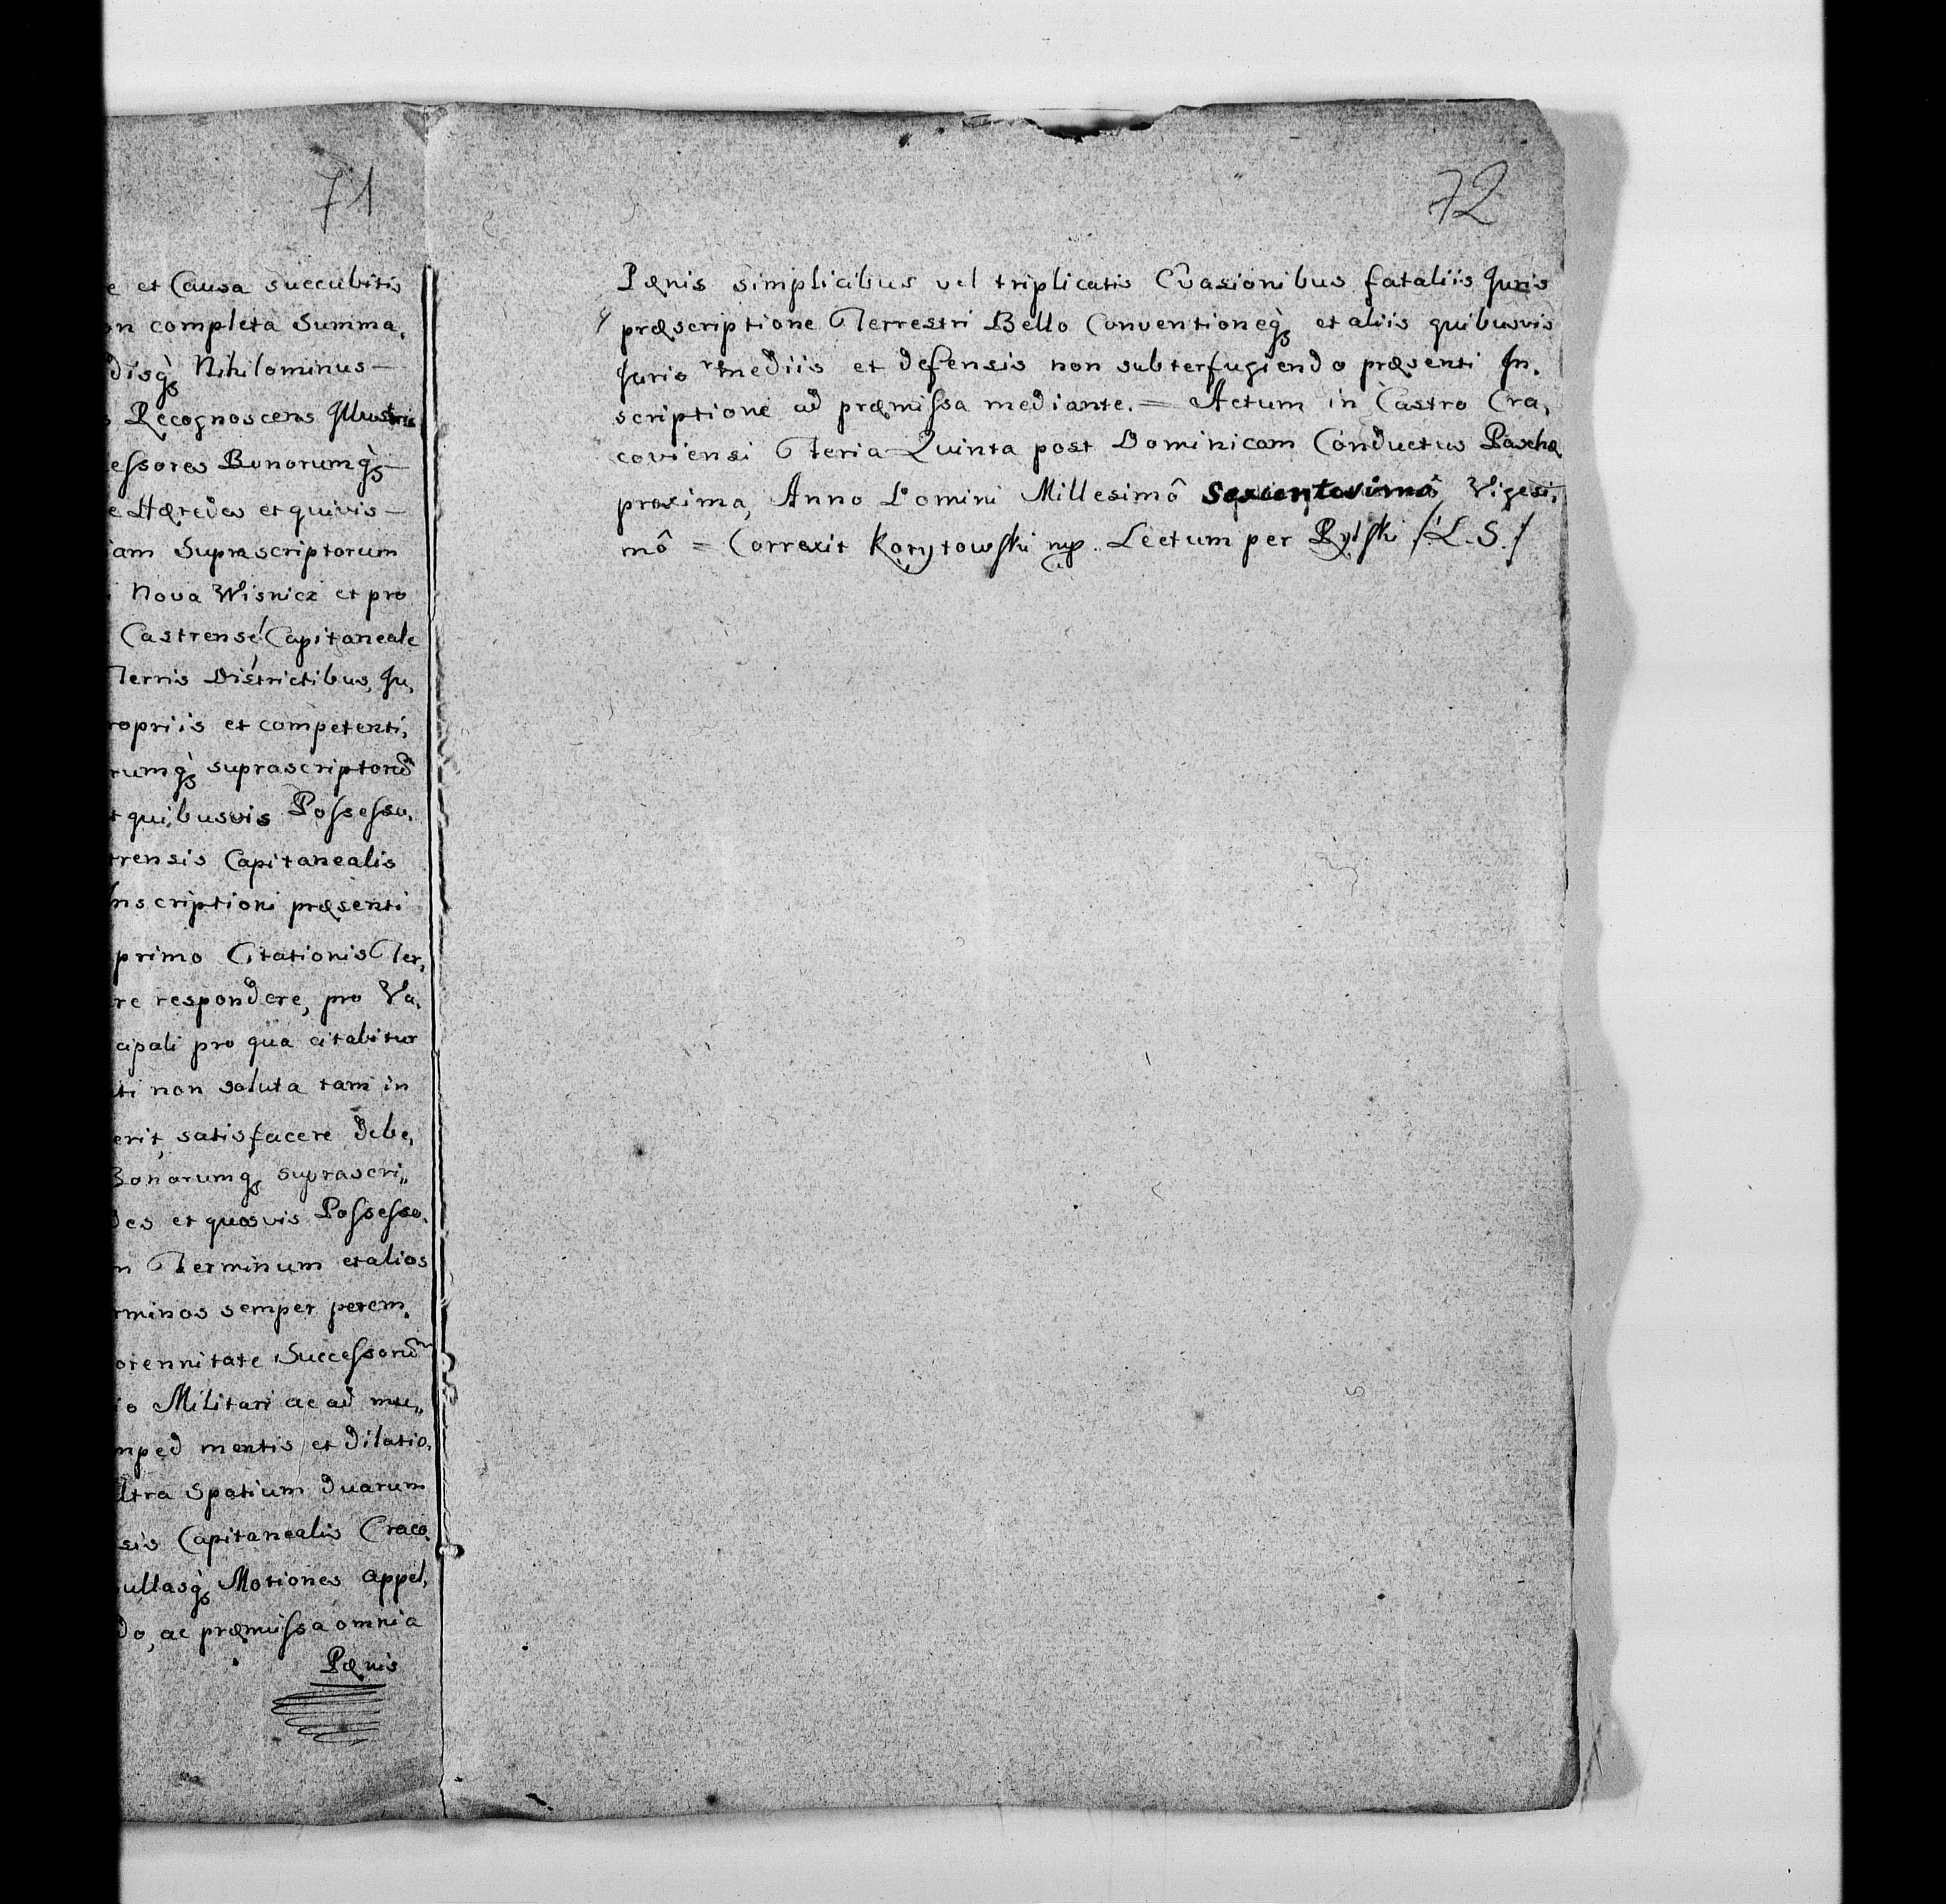 71
e et Causa succubitis
on completa Summa,
disq́ꝫ Nihilominus —
s Recognoscens Illustris
essores Bonorumq́ꝫ —
e Hæredes et quivis —
iam Suprascriptorum
i Nova Wisnicz et pro
Castrense Capitaneale
Terris Districtibus, Iu,
ropriis et competenti,
rumq́ꝫ suprascriptorũ
t quibusvis Possesso,
trensis Capitanealis
Inscriptioni præsenti
primo Citationis Ter,
re respondere, pro Va,
cipali pro qua citabitur
ti non soluta tam in
erit, satisfacere debe,
Bonorumqꝫ suprascri„
des et quosvis Possesso,
n Terminum et alios
rminos semper perem,
orennitate Successorũ
io Militari ac ad mu„
mped mentis et dilatio,
ltra Spatium duarum
sis Capitanealis Craco,
ullasq́ꝫ Motiones appel,
do, ac præmissa omnia
Pænis
72
Pænis simplicibus vel triplicatis Evasionibus fataliis Juris
præscriptione Terrestri Bello Conventioneq́ꝫ et aliis quibusvis
Juris remediis et defensis non subterfugiendo præsenti In,
scriptione ad præmissa mediante. = Actum in Castro Cra,
coviensi Feria Quinta post Dominicam Conductus Pascha
proxima, Anno Domini Millesimô Sexcentesimô Vigesi,
mô = Correxit Korytowski mp. Lectum per Rylski /L.S./